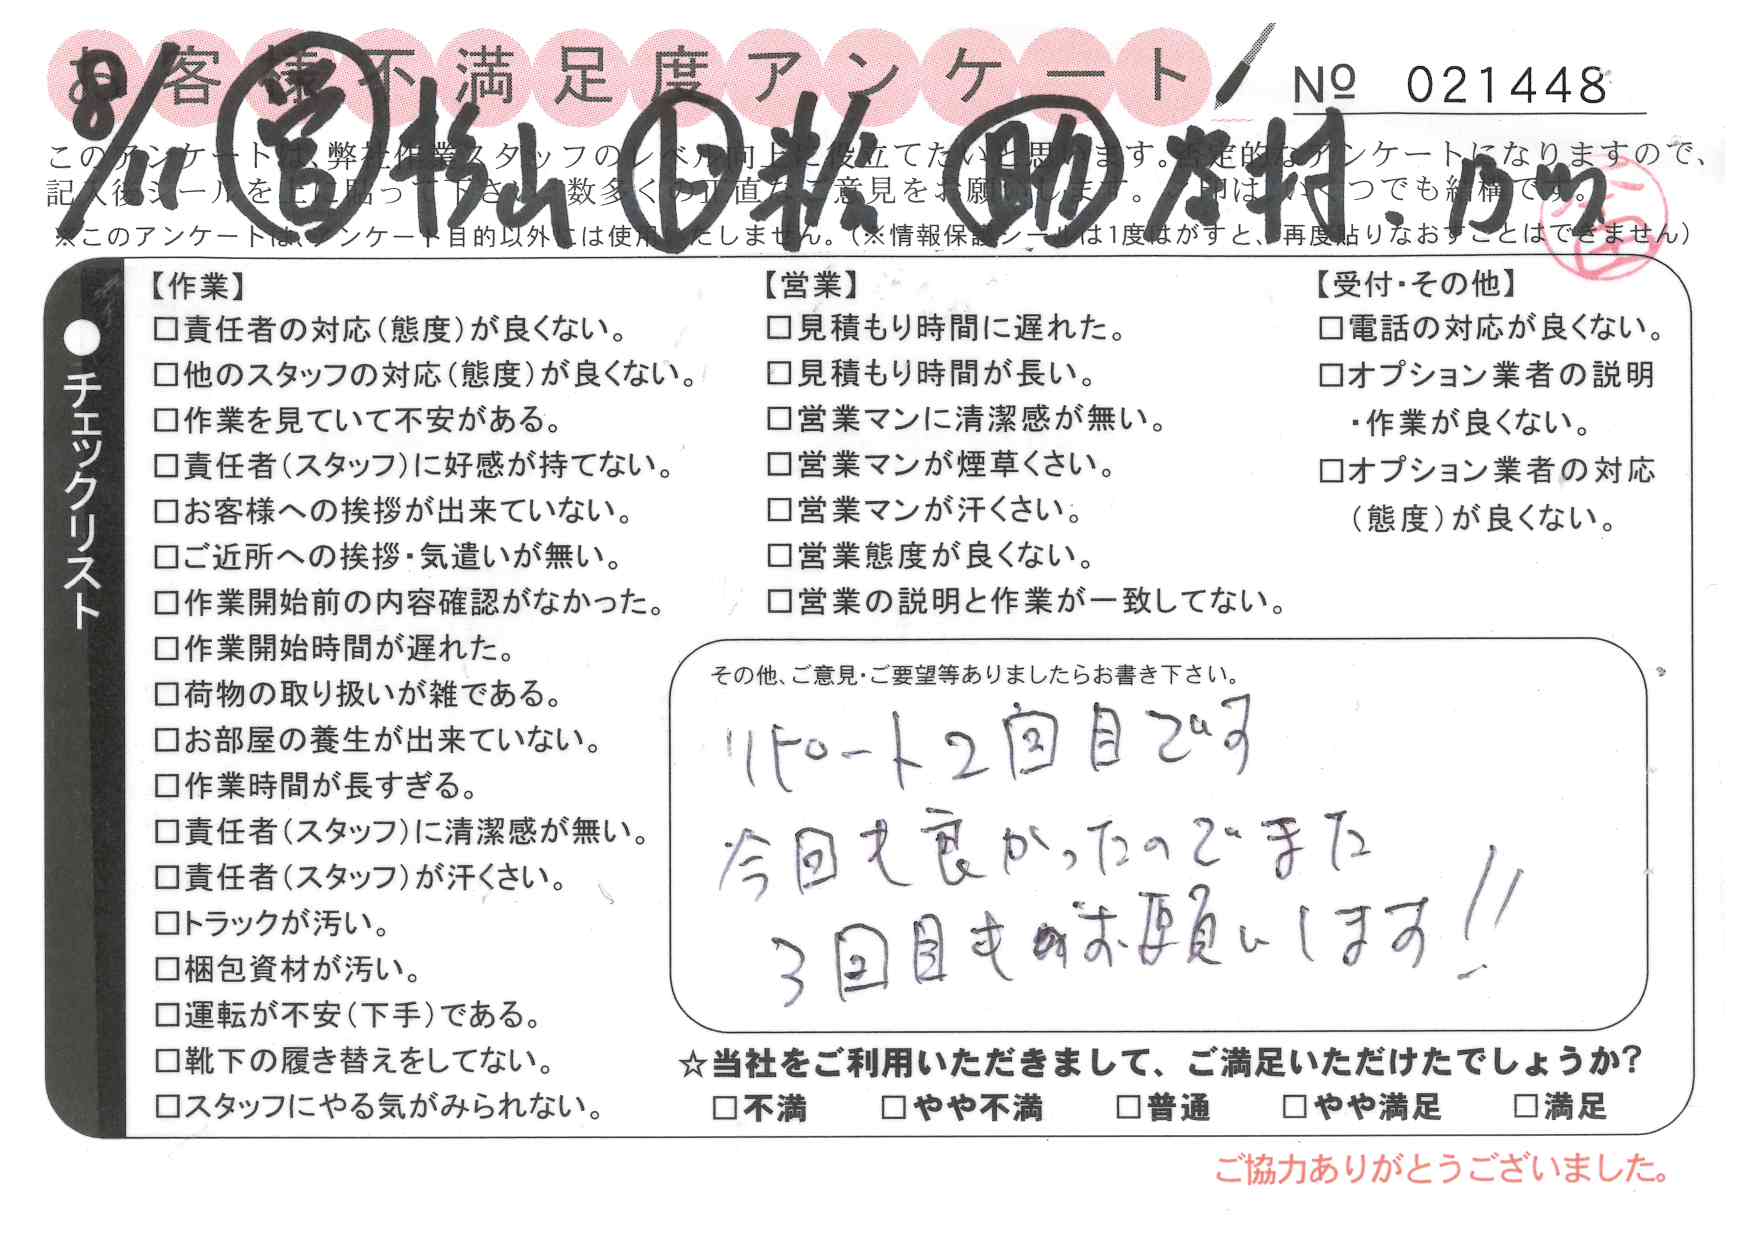 お客様不満足度アンケート
№ 021448
8/11 営 杉山 ト 松 助 村、
このアンケートは、弊社作業スタッフのレベル向上に役立てたいと思います。否定的なアンケートになりますので、
記入後シールを上に貼って下さい。数多くの正直なご意見をお願いします。✓印はいくつでも結構です。
※このアンケートは、アンケート目的以外には使用いたしません。(※情報保護シールは1度はがすと、再度貼りなおすことはできません)
●チェックリスト
【作業】
□責任者の対応(態度)が良くない。
□他のスタッフの対応(態度)が良くない。
□作業を見ていて不安がある。
□責任者(スタッフ)に好感が持てない。
□お客様への挨拶が出来ていない。
□ご近所への挨拶・気遣いが無い。
□作業開始前の内容確認がなかった。
□作業開始時間が遅れた。
□荷物の取り扱いが雑である。
□お部屋の養生が出来ていない。
□作業時間が長すぎる。
□責任者(スタッフ)に清潔感が無い。
□責任者(スタッフ)が汗くさい。
□トラックが汚い。
□梱包資材が汚い。
□運転が不安(下手)である。
□靴下の履き替えをしてない。
□スタッフにやる気がみられない。
【営業】
□見積もり時間に遅れた。
□見積もり時間が長い。
□営業マンに清潔感が無い。
□営業マンが煙草くさい。
□営業マンが汗くさい。
□営業態度が良くない。
□営業の説明と作業が一致してない。
【受付・その他】
□電話の対応が良くない。
□オプション業者の説明
・作業が良くない。
□オプション業者の対応
(態度)が良くない。
その他、ご意見・ご要望等ありましたらお書き下さい。
リピート2回目です
今回も良かったのでまた
3回目もお願いします!!
☆当社をご利用いただきまして、ご満足いただけたでしょうか?
□不満 □やや不満 □普通 □やや満足 □満足
ご協力ありがとうございました。